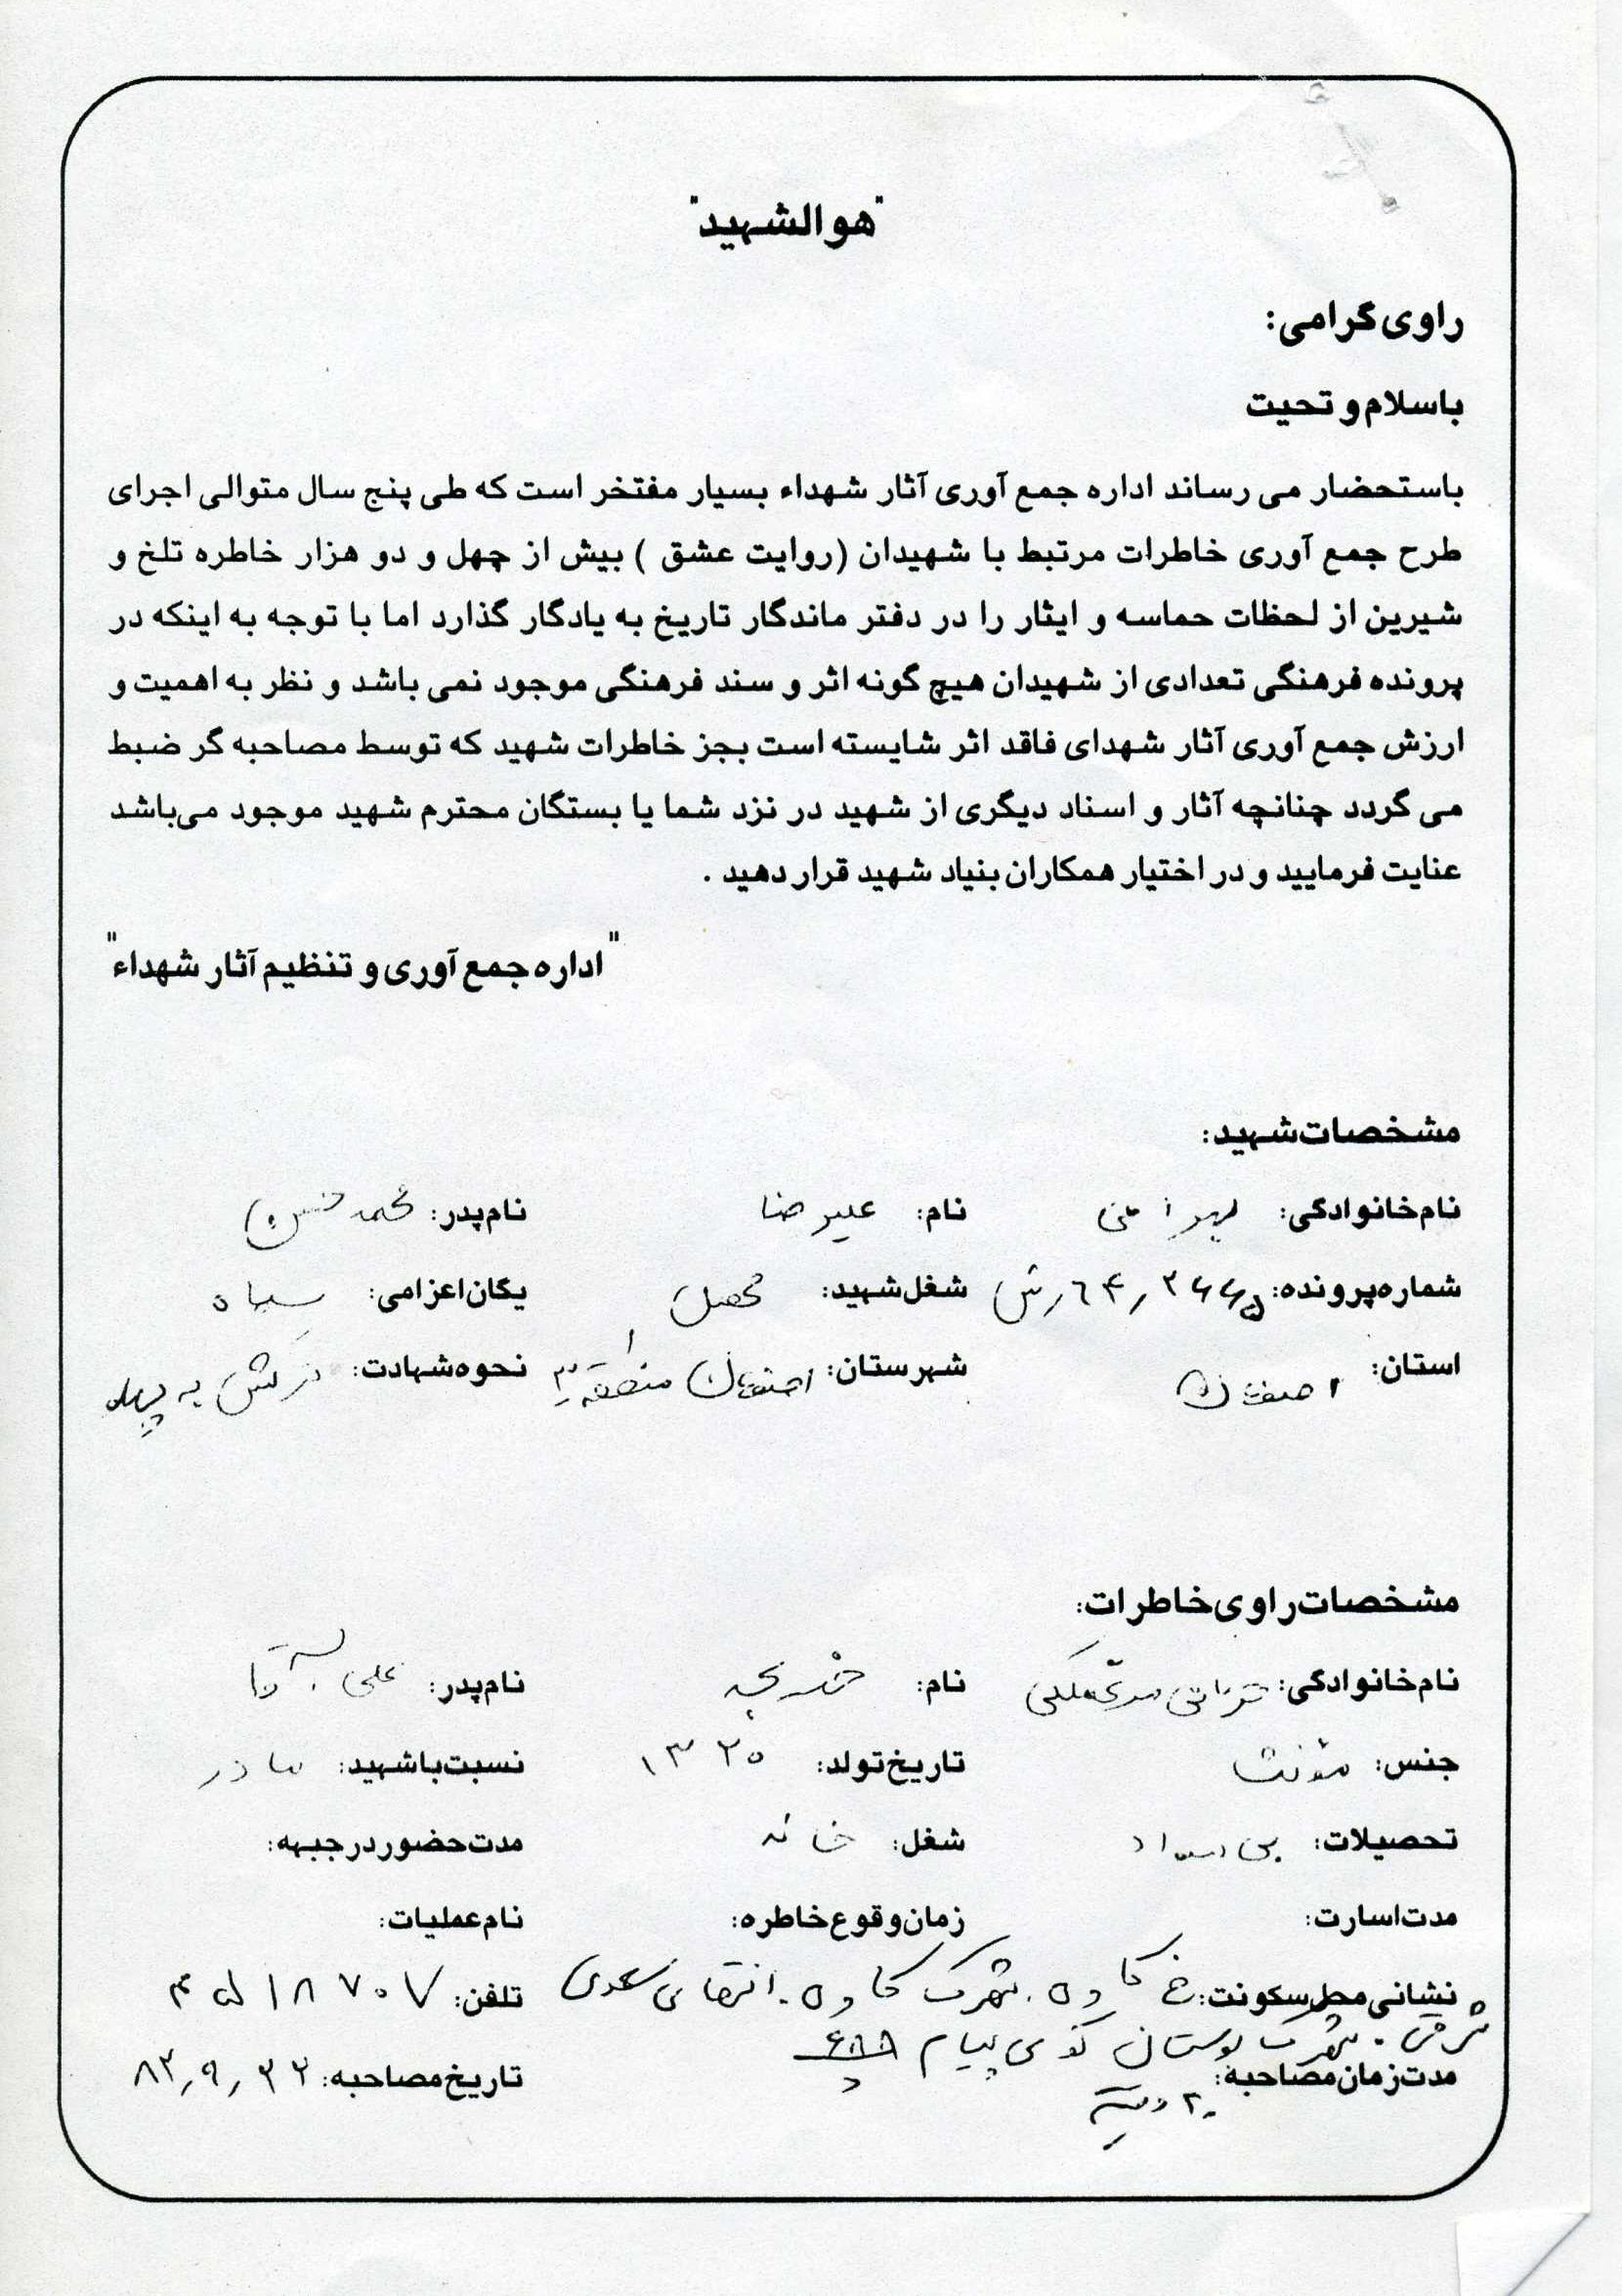 "هوالشهید"
راوی گرامی:
باسلام و تحیت
باستحضار می رساند اداره جمع آوری آثار شهداء بسیار مفتخر است که طی پنج سال متوالی اجرای
طرح جمع آوری خاطرات مرتبط با شهیدان (روایت عشق ) بیش از چهل و دو هزار خاطره تلخ و
شیرین از لحظات حماسه و ایثار را در دفتر ماندگار تاریخ به یادگار گذارد اما با توجه به اینکه در
پرونده فرهنگی تعدادی از شهیدان هیچ گونه اثر و سند فرهنگی موجود نمی باشد و نظر به اهمیت و
ارزش جمع آوری آثار شهدای فاقد اثر شایسته است بجز خاطرات شهید که توسط مصاحبه گر ضبط
می گردد چنانچه آثار و اسناد دیگری از شهید در نزد شما یا بستگان محترم شهید موجود می‌باشد
عنایت فرمایید و در اختیار همکاران بنیاد شهید قرار دهید .
"اداره جمع آوری و تنظیم آثار شهداء"
مشخصات شهید:
نام خانوادگی: نام: علیرضا نام پدر: محمد حسن
شماره پرونده: شغل شهید: محصل یگان اعزامی: سپاه
استان: اصفهان شهرستان: اصفهان منطقه ۳ نحوه شهادت: ترکش به پهلو
مشخصات راوی خاطرات:
نام خانوادگی: نام: خدیجه نام پدر: علی آقا
جنس: مونث تاریخ تولد: ۱۳۲۰ نسبت با شهید: مادر
تحصیلات: بی سواد شغل: خانه مدت حضور در جبهه:
مدت اسارت: زمان وقوع خاطره: نام عملیات:
نشانی محل سکونت: خ کاوه . شهرک کاوه . انتهای سعدی تلفن: ۴۵۱۸۷۰۷
شرقی . شهرک بوستان کوی پیام
مدت زمان مصاحبه: ۲۰ دقیقه تاریخ مصاحبه: ۸۳٫۹٫۲۲